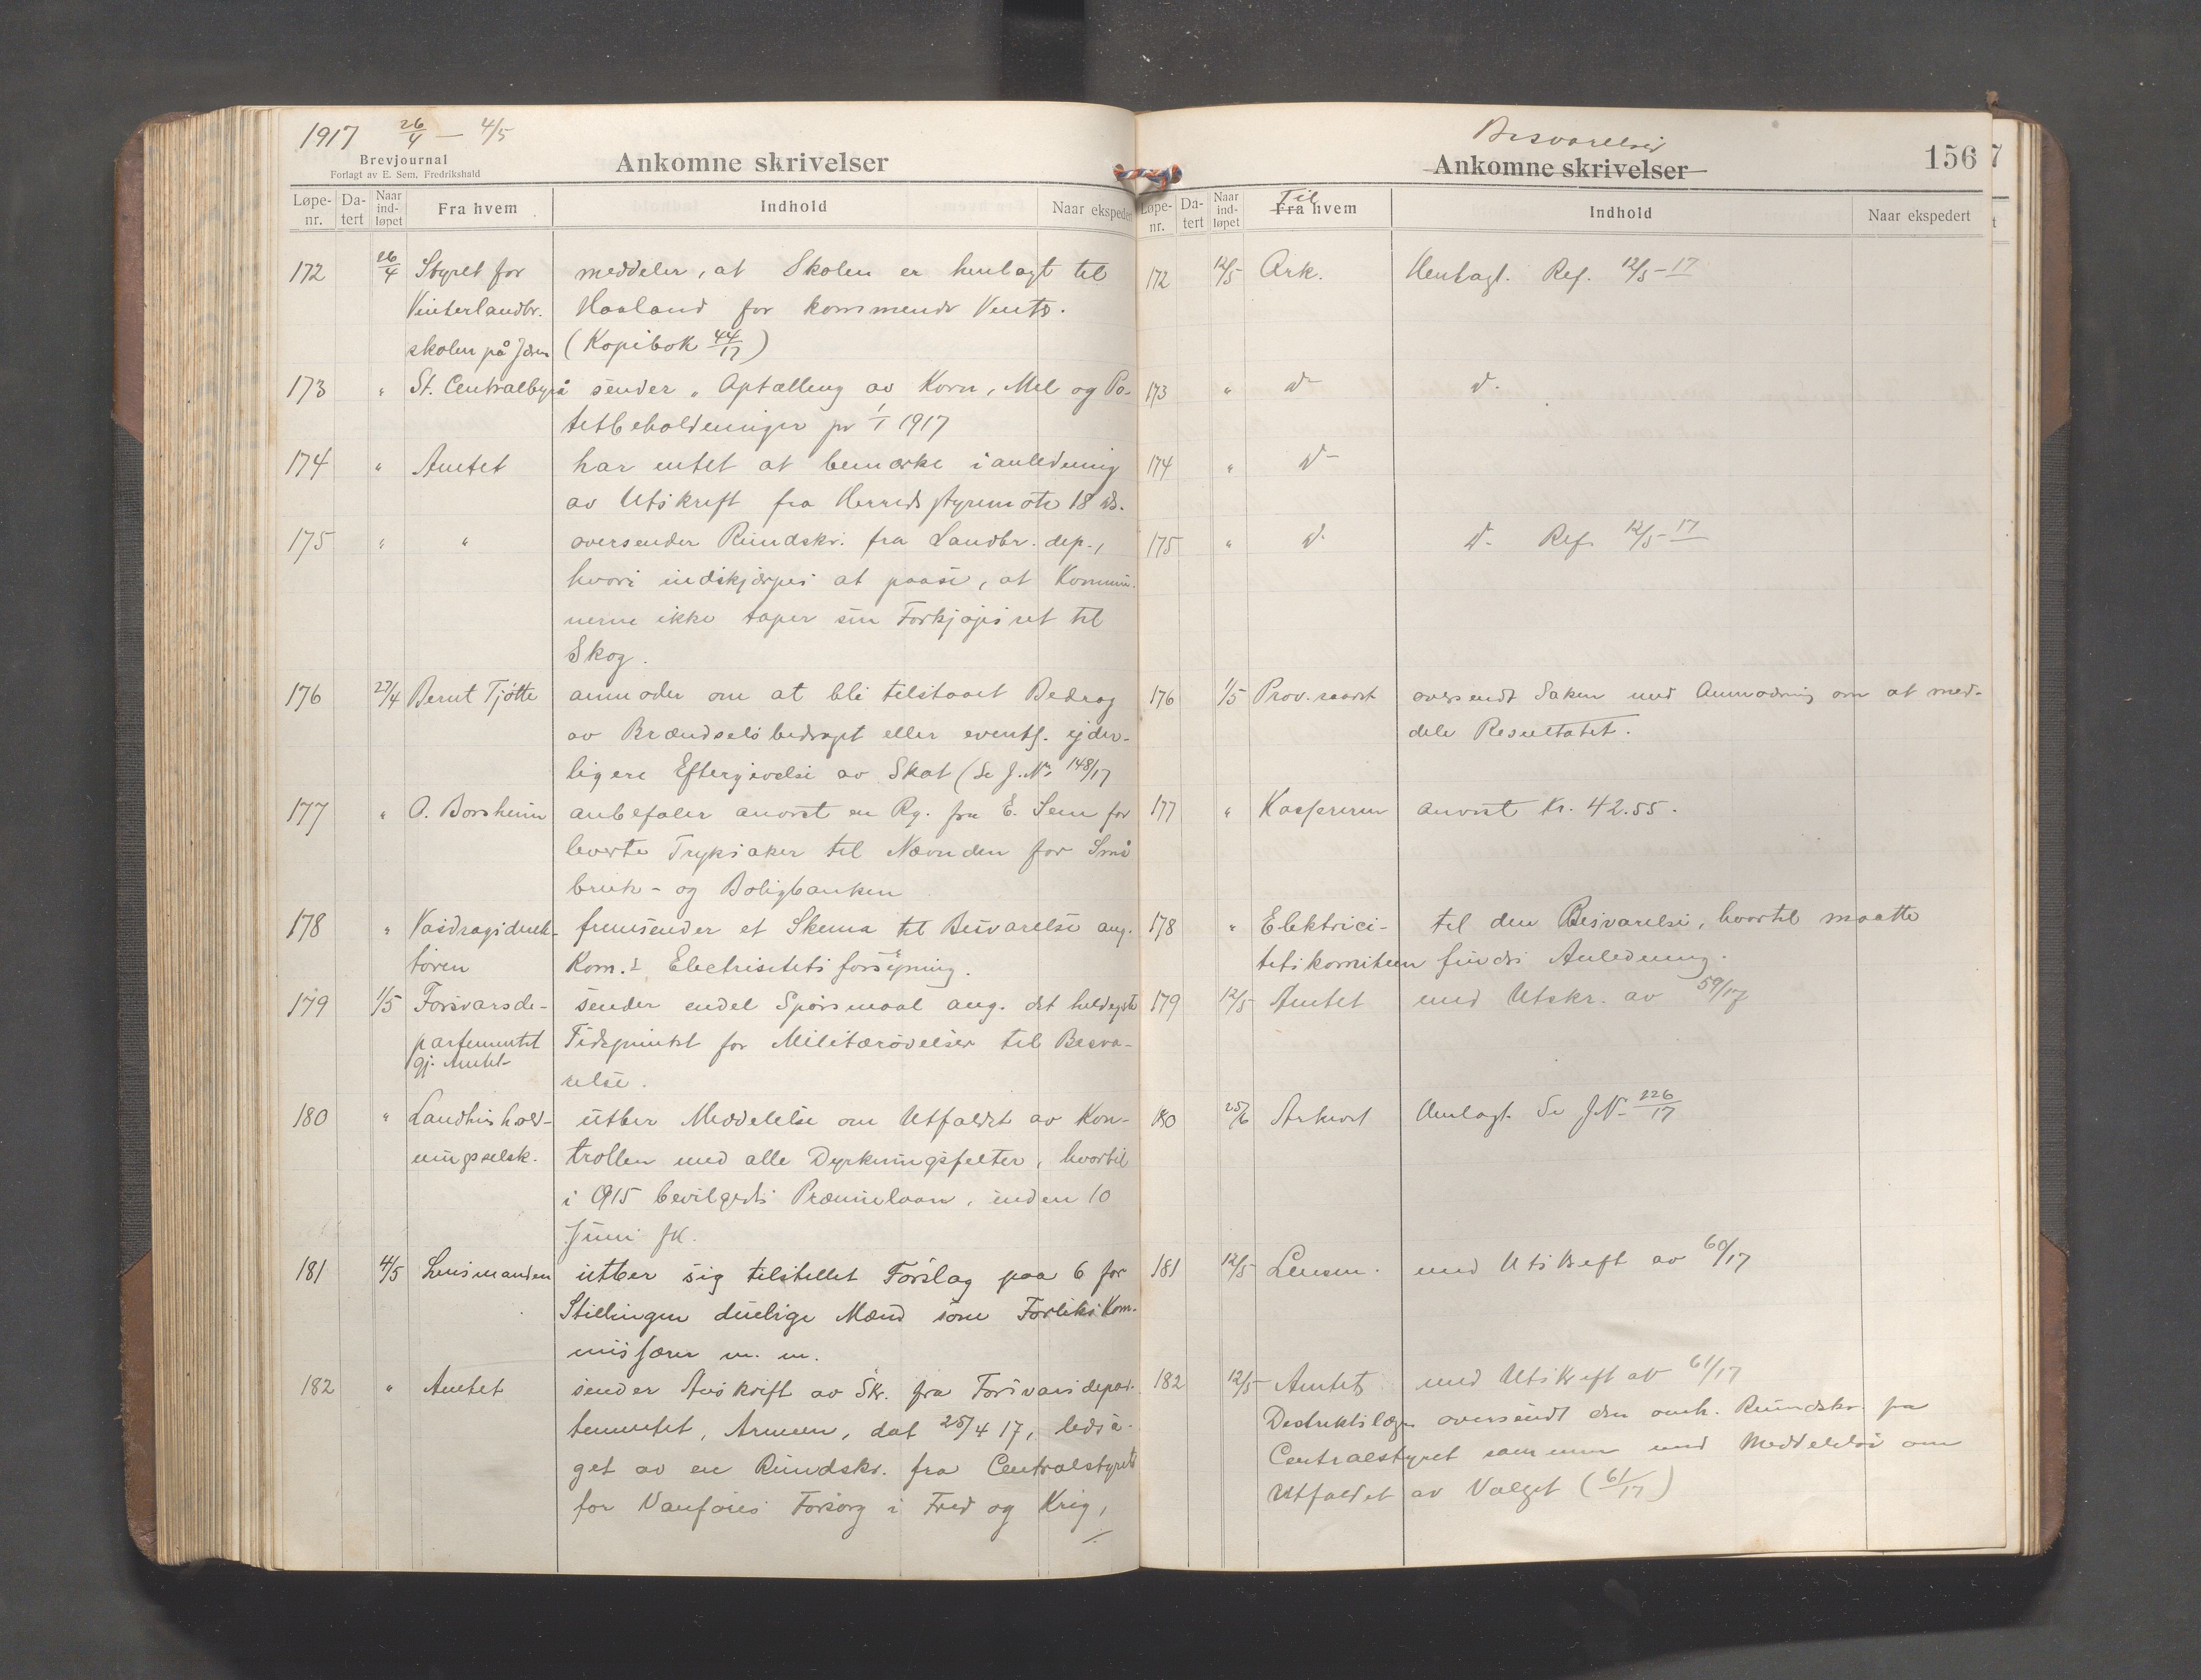 1917 26/4 — 4/5
Brevjournal
Forlagt av E. Sem, Fredrikshald
Ankomne skrivelser
Løpe-nr. Da-tert Naar ind-løpet Fra hvem Indhold Naar ekspedert
172 26/4 Styret for meddeler, at Skolen er henlagt til
Vinterlandbr. Haaland for kommende Vinter.
skolen på Jæren (Kopibok 44/17)
173 " St. Centralbyrå sender „Optælling av Korn, Mel og Po-
tetbeholdninger pr 1/1 1917
174 " Amtet har intet at bemærke i anledning
av Utskrift fra Herredsstyremøte 18 ds.
175 " " oversender Rundskr. fra Landbr. dep.,
hvori indskjærpes at paase, at Kommu-
nerne ikke taper sin Forkjøpsret til
Skog.
176 27/4 Bernt Tjötte anmoder om at bli tilstaaet Bedrag
av Brændselsbedraget eller eventl. yder-
ligere Eftergivelse av Skat (Se J.Nr 148/17
177 " O. Borsheim anbefaler anvist en Rg. fra E. Sem for
leverte Tryksaker til Nævnden for Små
bruk- og Boligbanken
178 " Vasdragsdirek- fremsender et Skema til Besvarelse ang.
tøren Kom.s Electrisitetsforsyning.
179 1/5 Forsvarsde- sender endel Spörsmaal ang. det heldigste
partementet Tidspunkt for Militærøvelser til Besva-
gj. Amtet relse.
180 " Landhushold- utber Meddelelse om Utfaldet av Kon-
ningsselsk. trollen med alle Dyrkningsfelter, hvortil
i 1915 bevilgedes Præmielaan, inden 10
Juni ftk.
181 4/5 Lensmanden utber sig tilstillet Forslag paa 6 for
Stillingen duelige Mænd som Forlikskom-
missærer m. m.
182 " Amtet sender Avskrift av Skr. fra Forsvarsdepar-
tementet, Armeen, dat 25/4 17, ledsa-
get av en Rundskr. fra Centralstyret
for Vanføres Forsorg i Fred og Krig,
./.
Besvarelser
Ankomne skrivelser
156
7
Løpe-nr. Da-tert Naar ind-løpet Til Fra hvem Indhold Naar ekspedert
172 12/5 Ark. Henlagt. Ref. 12/5-17
173 " d- d-
174 " d-
175 " d- d- Ref. 12/5-17
176 1/5 Prov.raadet oversendt Saken med Anmodning om at med-
dele Resultatet.
177 " Kassereren anvist kr. 42.55.
178 " Elektrici- til den Besvarelse, hvortil maatte
tetskomiteen findes Anledning.
179 12/5 Amtet med Utskr. av 59/17
180 25/6 Arkivet Henlagt. Se J.N. 226/17
181 12/5 Lensm. med Utskrift av 60/17
182 12/5 Amtet med Utskrift av 61/17
Distriktslægen oversendt den omh. Rundskr. fra
Centralstyret sammen med Meddelelse om
Utfaldet av Valget (61/17)